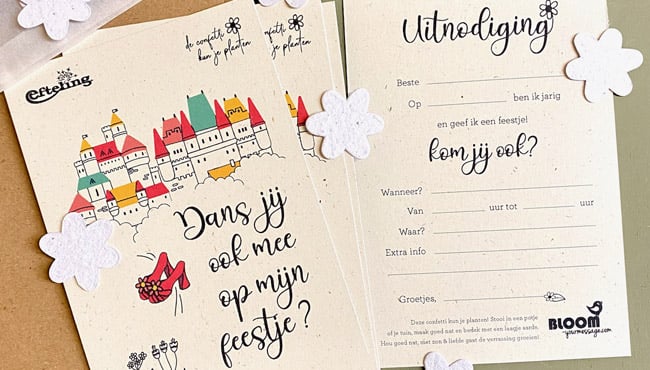 de confetti
kan je planten
efteling
Dans jij
ook mee
op mijn
feestje?
nfetti
planten
Uitnodiging
Beste
Op ben ik jarig
en geef ik een feestje!
kom jij ook?
Wanneer?
Van uur tot uur
Waar?
Extra info
Groetjes,
Deze confetti kun je planten! Stool in een potje
of je tuin, maak goed nat en bedek met een laagje aarde.
Hou goed nat, niet zon & liefde gaat de verrassing groeien!
BLOOM
yourmessage.com